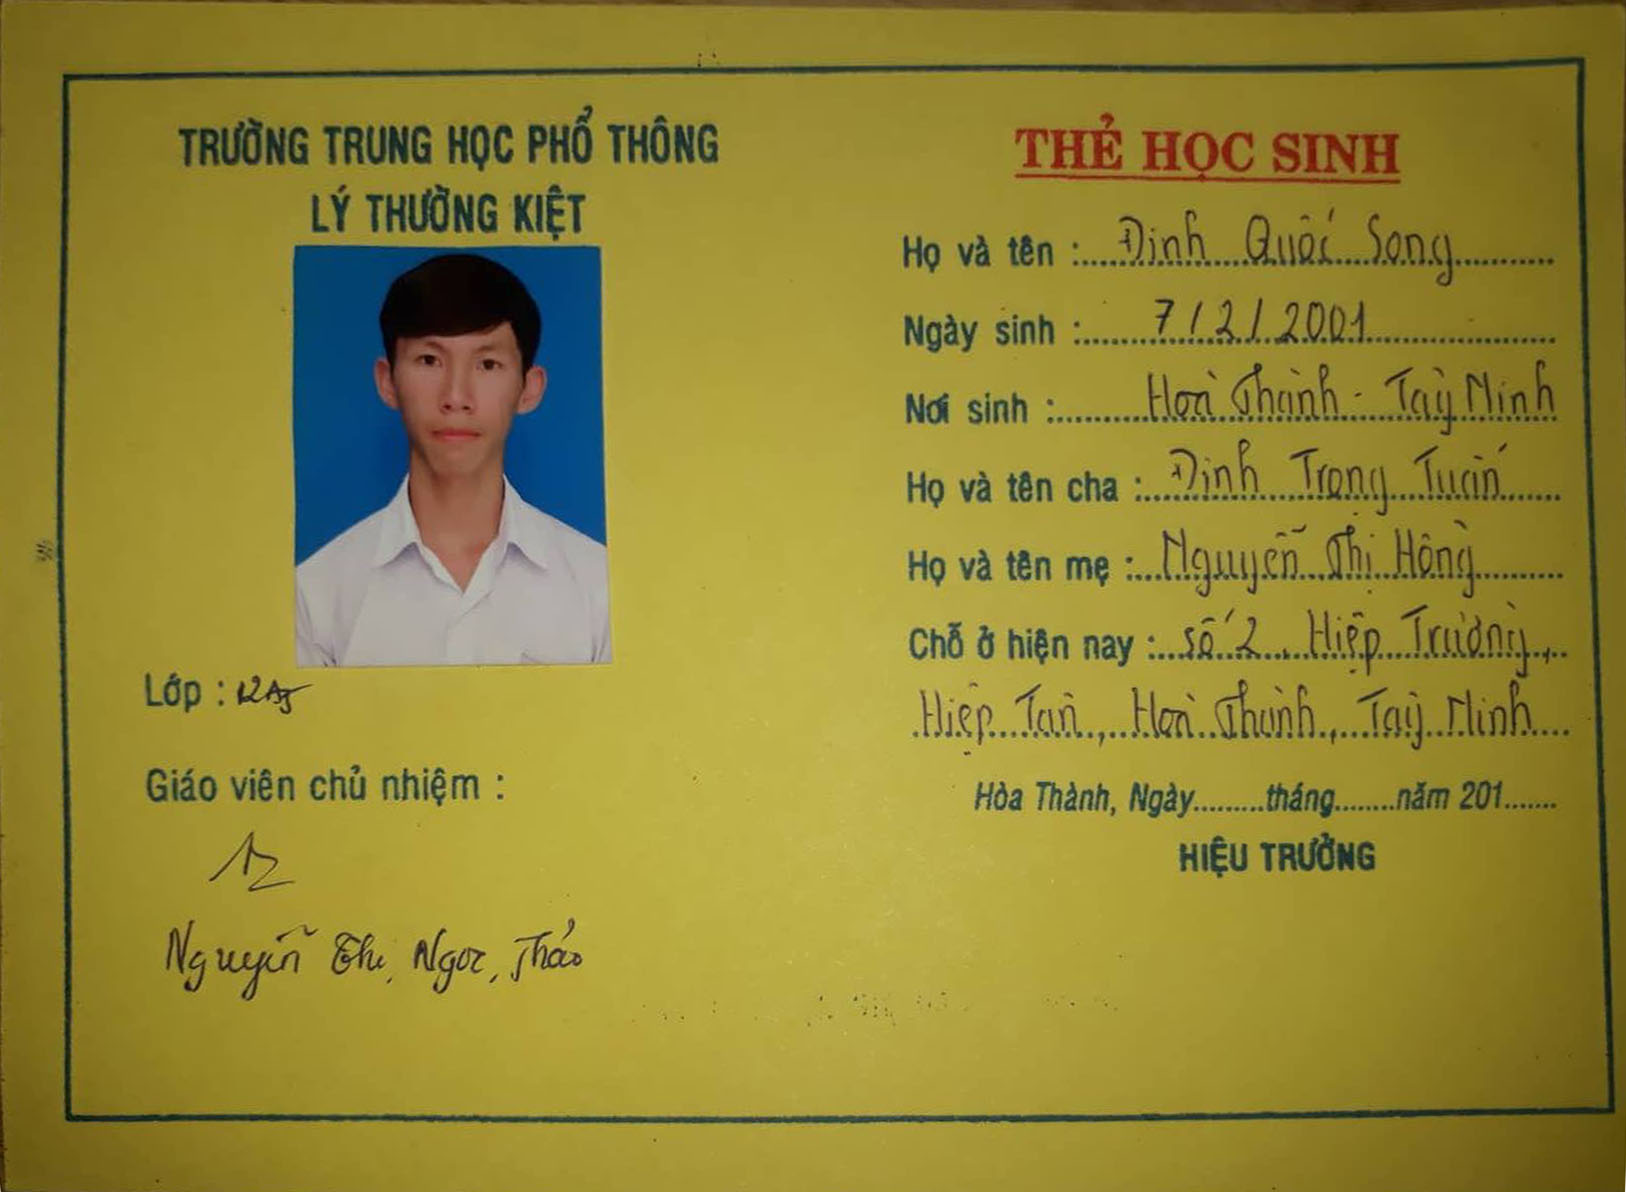 TRƯỜNG TRUNG HỌC PHỔ THÔNG
LÝ THƯỜNG KIỆT
Lớp : 12A5
Giáo viên chủ nhiệm :
Nguyễn Thị Ngọc Thảo
THẺ HỌC SINH
Họ và tên : Đinh Quốc Song
Ngày sinh : 7/2/2001
Nơi sinh : Hoà Thành - Tây Ninh
Họ và tên cha : Đinh Trọng Tuấn
Họ và tên mẹ : Nguyễn Thị Hồng
Chỗ ở hiện nay : số 2, Hiệp Trường,
Hiệp Tân, Hoà Thành, Tây Ninh
Hòa Thành, Ngày.........tháng........năm 201.......
HIỆU TRƯỞNG